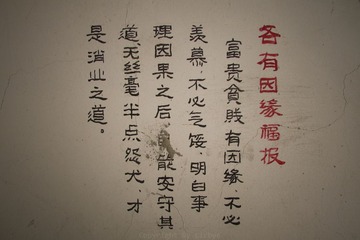 各有因缘福报
富贵贫贱有因缘，不必
羡慕，不必气馁，明白事
理因果之后，能安守其
道无丝毫半点怨尤，才
是消业之道。